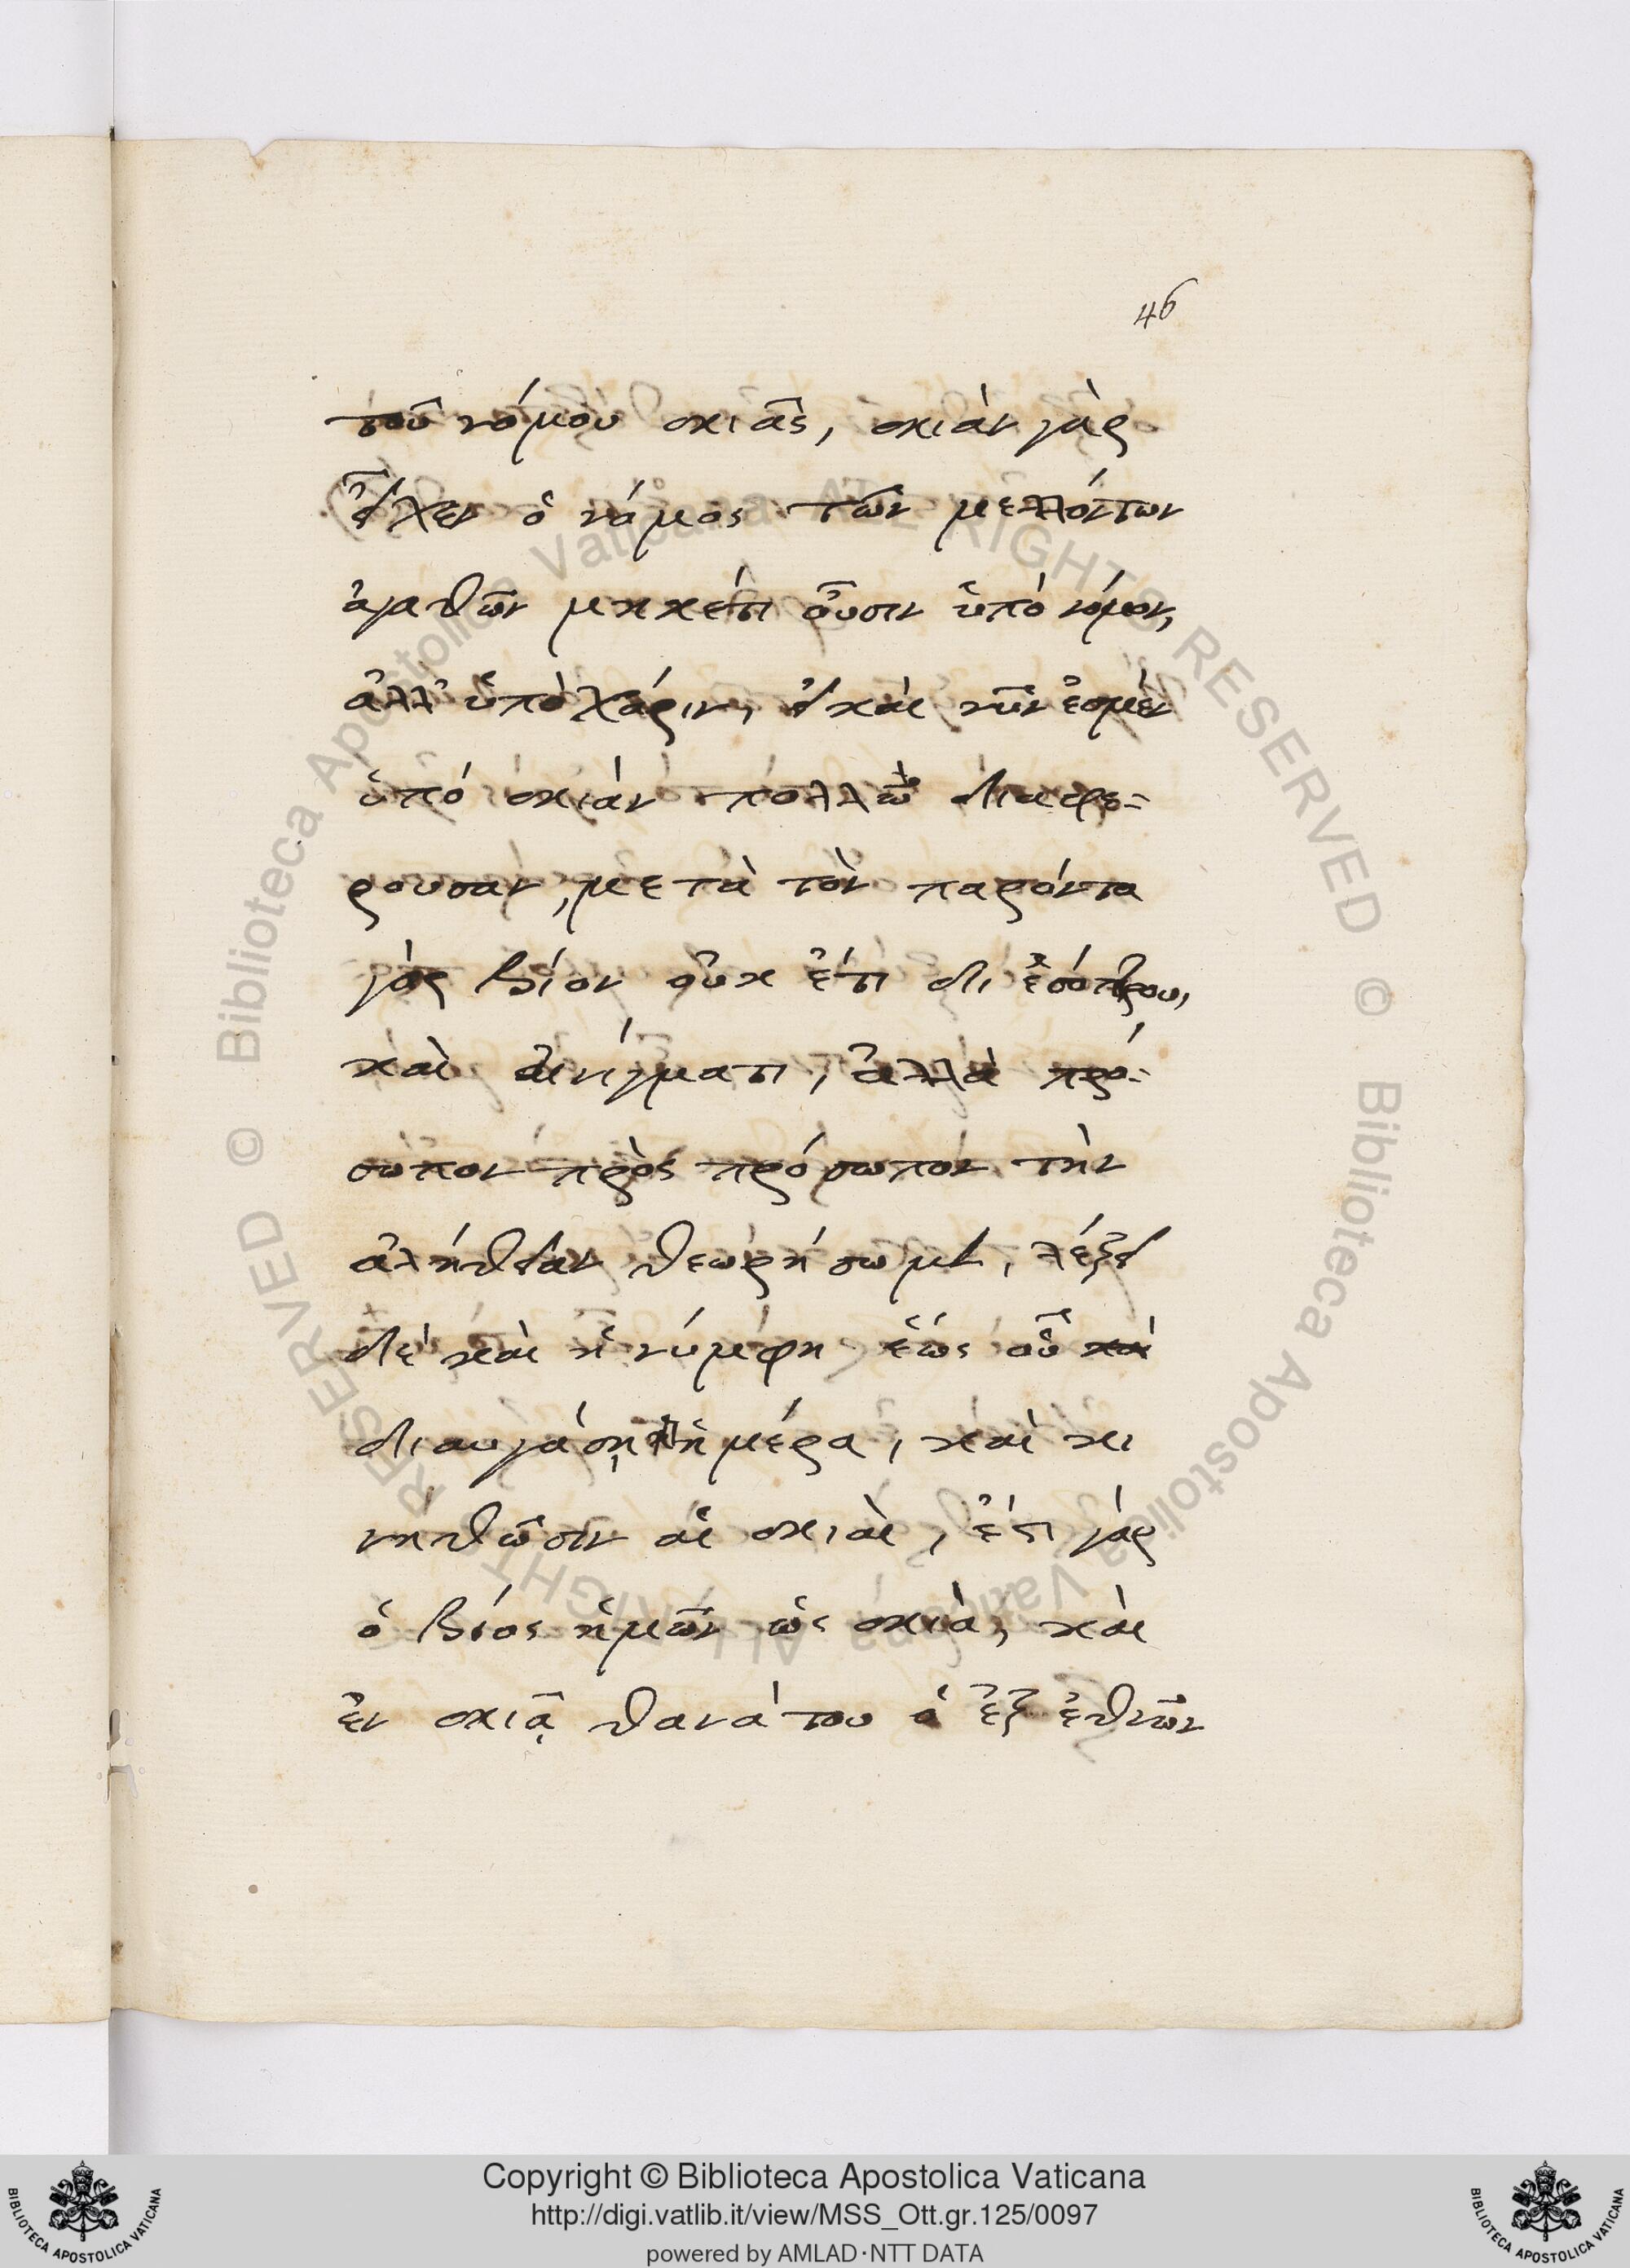 46
τοῦ νόμου σκιᾶς, σκιὰν γὰρ
εἶχεν ὁ νόμος τῶν μελλόντων
ἀγαθῶν μηκέτι οὖσιν ὑπὸ νόμον,
ἀλλ' ὑπὸ χάριν, εἰ καὶ νῦν ἐσμὲν
ὑπό σκιάν πολλῶ διαφε-
ρουσαν, μετὰ τὸν παρόντα
γὰρ βίον οὐκ ἔτι δι ἐσόπτρου,
καὶ αἰνίγματι, ἀλλὰ πρό-
σωπον πρὸς πρόσωπον τὴν
ἀλήθειαν θεωρήσωμεν, λέξει
δὲ καὶ ἡ νύμφη ἕως οὗ
διαυγάσῃ ἡ ἡμέρα, καὶ κι
νηθῶσιν αἱ σκιαὶ, ἔτι γὰρ
ὁ βίος ἡμῶν ὡς σκιὰ, καὶ
ἐν σκιᾷ θανάτου ὁ ἐξ ἐθνῶν
© Biblioteca Apostolica Vaticana ALL RIGHTS RESERVED
© Biblioteca Apostolica Vaticana ALL RIGHTS RESERVED
Copyright © Biblioteca Apostolica Vaticana
http://digi.vatlib.it/view/MSS_Ott.gr.125/0097
powered by AMLAD·NTT DATA
BIBLIOTECA APOSTOLICA VATICANA
BIBLIOTECA APOSTOLICA VATICANA